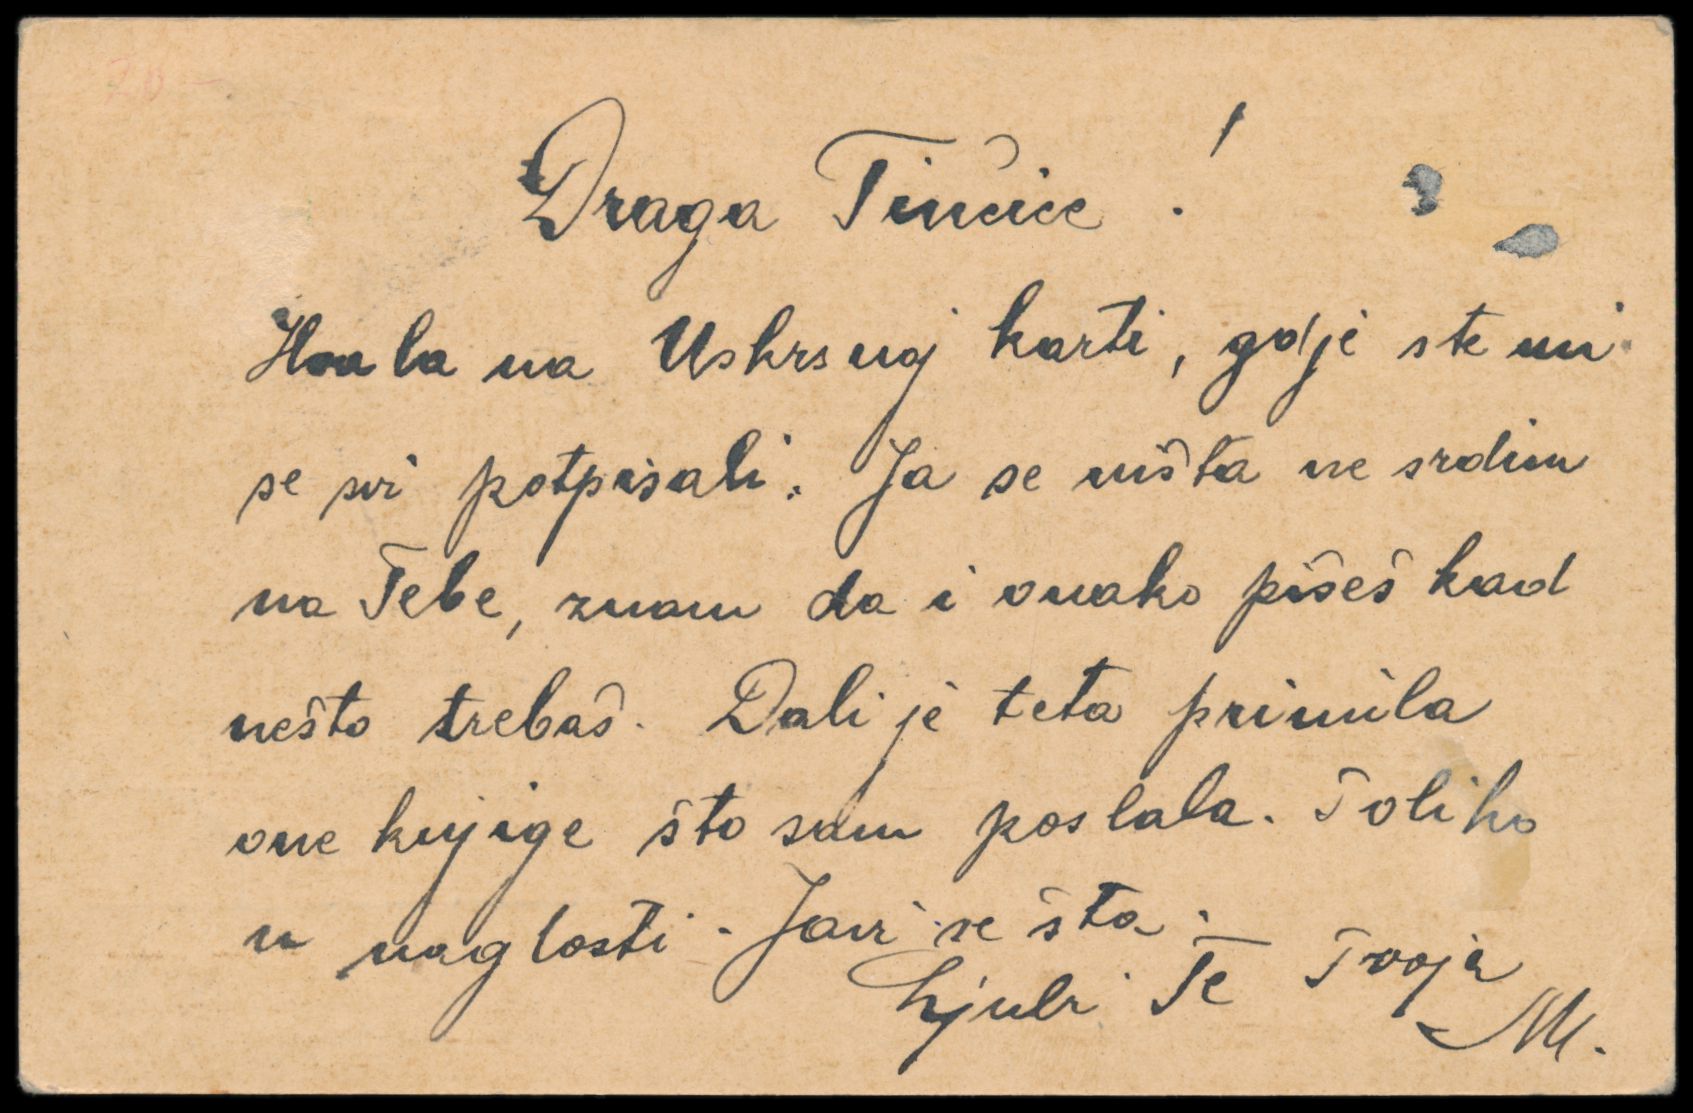 20 –
Draga Tinčice!
Hvala na Uskrsnoj karti, gdje ste mi
se svi potpisali. Ja se ništa ne srdim
na Tebe, znam da i onako pišeš kad
nešto trebaš. Dali je teta primila
one knjige što sam poslala. Toliko
u naglosti. Javi se šta.
Ljubi Te Tvoja
M.